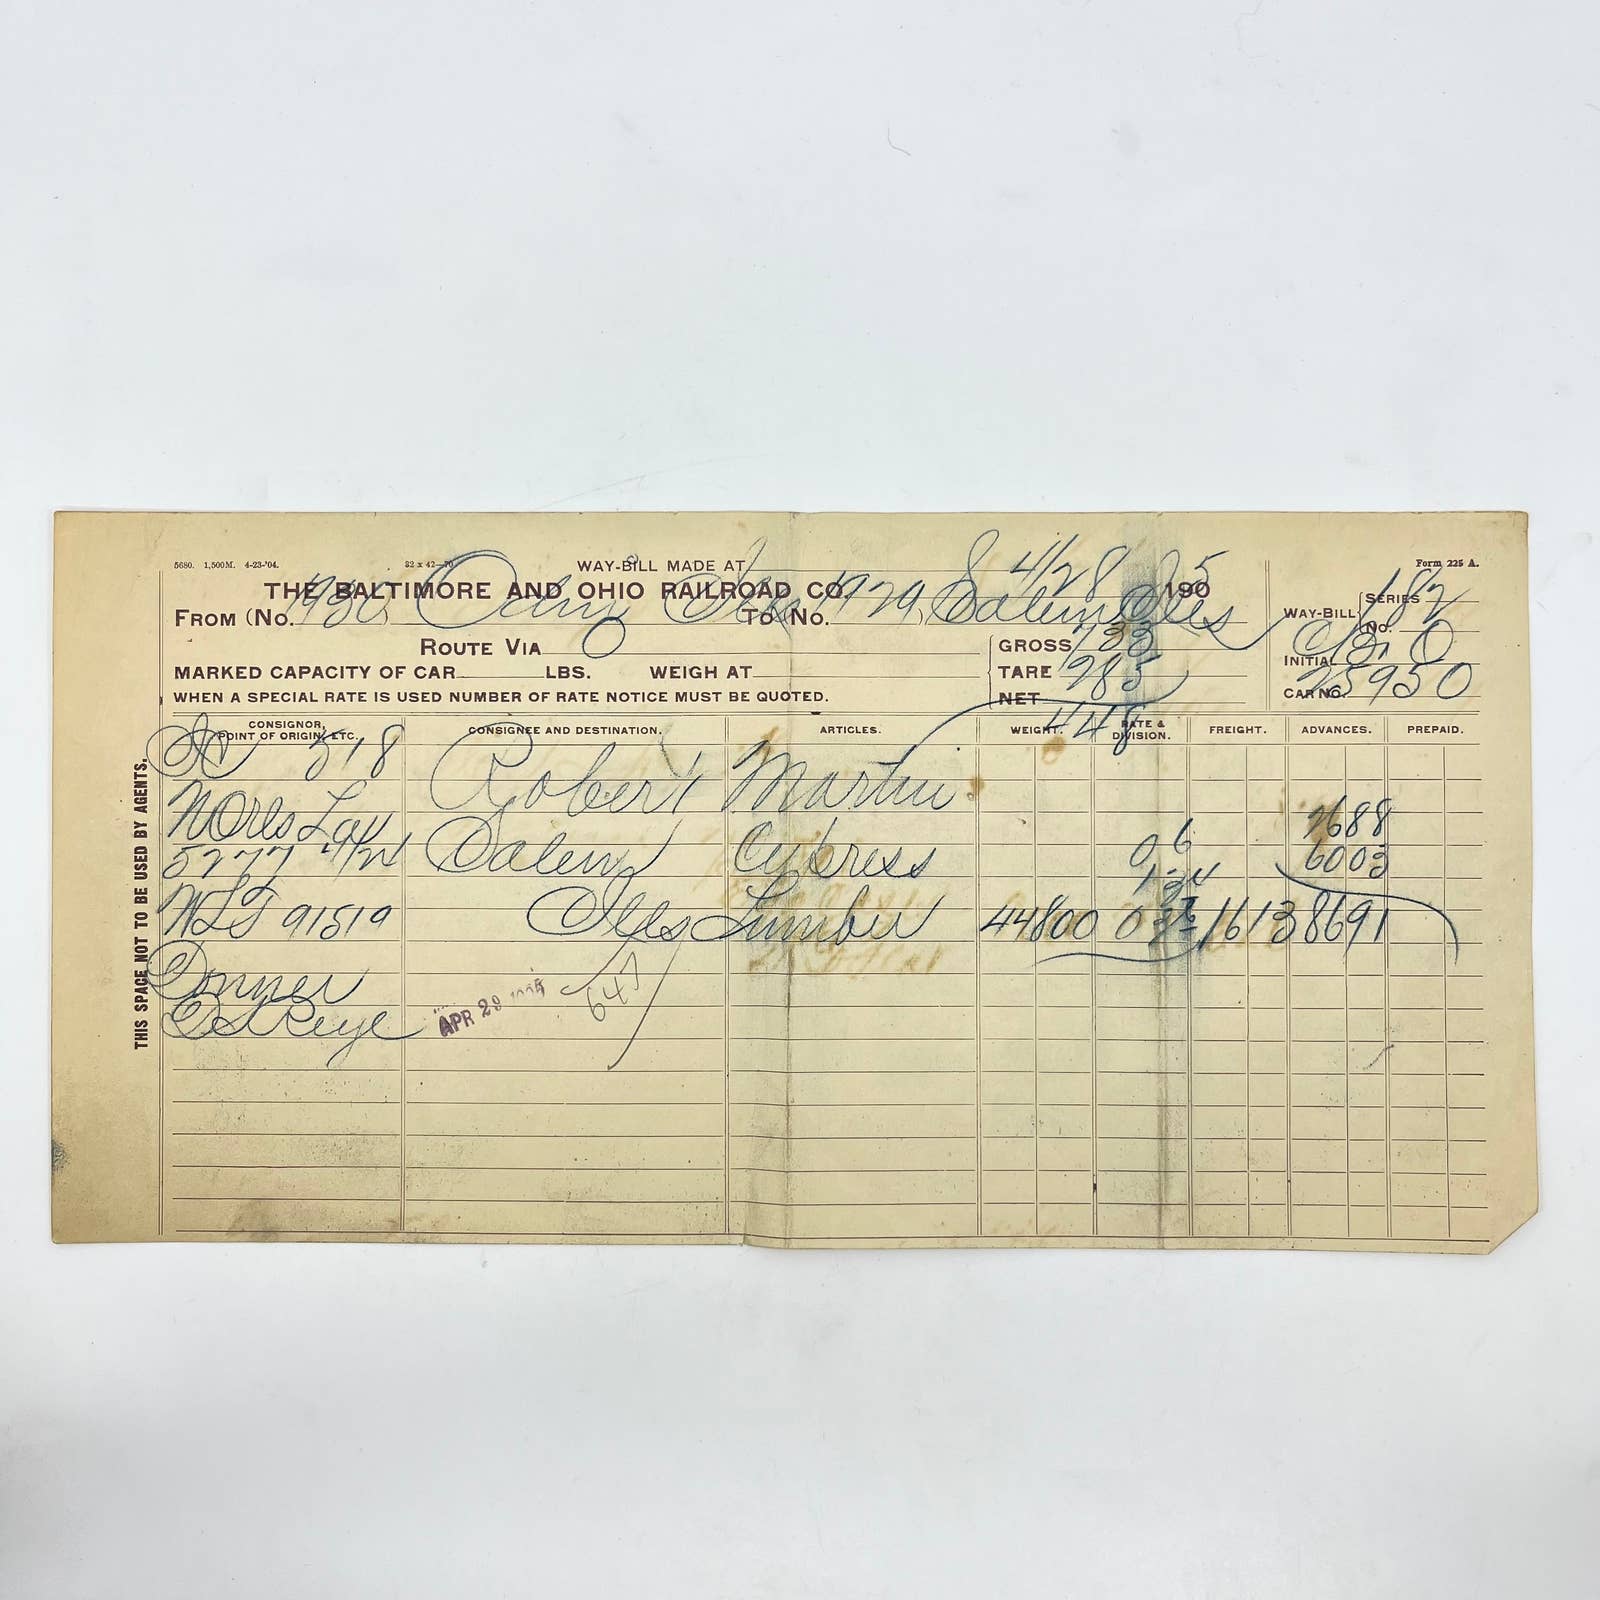 5680. 1,500M. 4-23-'04. 32 x 42—70 WAY-BILL MADE AT Form 225 A.
THE BALTIMORE AND OHIO RAILROAD CO. 4/28 1905
FROM (No. 1930 Odin Ills TO No. 1929 Salem Ills
WAY-BILL SERIES 182
No.
ROUTE VIA
GROSS 733
INITIAL
MARKED CAPACITY OF CAR LBS. WEIGH AT
TARE 285
CAR NO. 25950
WHEN A SPECIAL RATE IS USED NUMBER OF RATE NOTICE MUST BE QUOTED.
NET 448
THIS SPACE NOT TO BE USED BY AGENTS.
CONSIGNOR, POINT OF ORIGIN, ETC. CONSIGNEE AND DESTINATION. ARTICLES. WEIGHT. RATE & DIVISION. FREIGHT. ADVANCES. PREPAID.
518 Robert Martin
N Orls La 2688
5277 4/21 Salem Cypress 06 6003
91519 Ills Lumber 44800 1613 8691
Donner
APR 29 1905 647